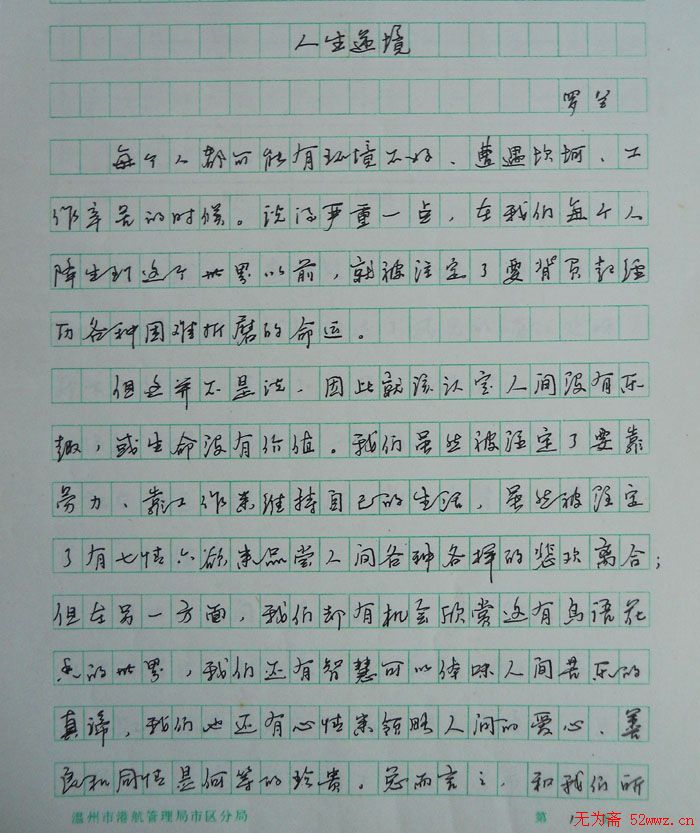 人生逆境
罗兰
每个人都可能有环境不好、遭遇坎坷、工
作辛苦的时候。说得严重一点,在我们每个人
降生到这个世界以前,就被注定了要背负起经
历各种困难折磨的命运。
但这并不是说,因此就该认定人间没有乐
趣,或生命没有价值。我们虽然被注定了要靠
劳力、靠工作来维持自己的生活,虽然被注定
了有七情六欲来品尝人间各种各样的悲欢离合;
但在另一方面,我们却有机会欣赏这有鸟语花
香的世界,我们还有智慧可以体味人间苦乐的
真谛,我们也还有心情来领略人间的爱心、善
良和同情是何等的珍贵。总而言之,和我们所
温州市港航管理局市区分局
第 1
无为斋 52wwz.cn